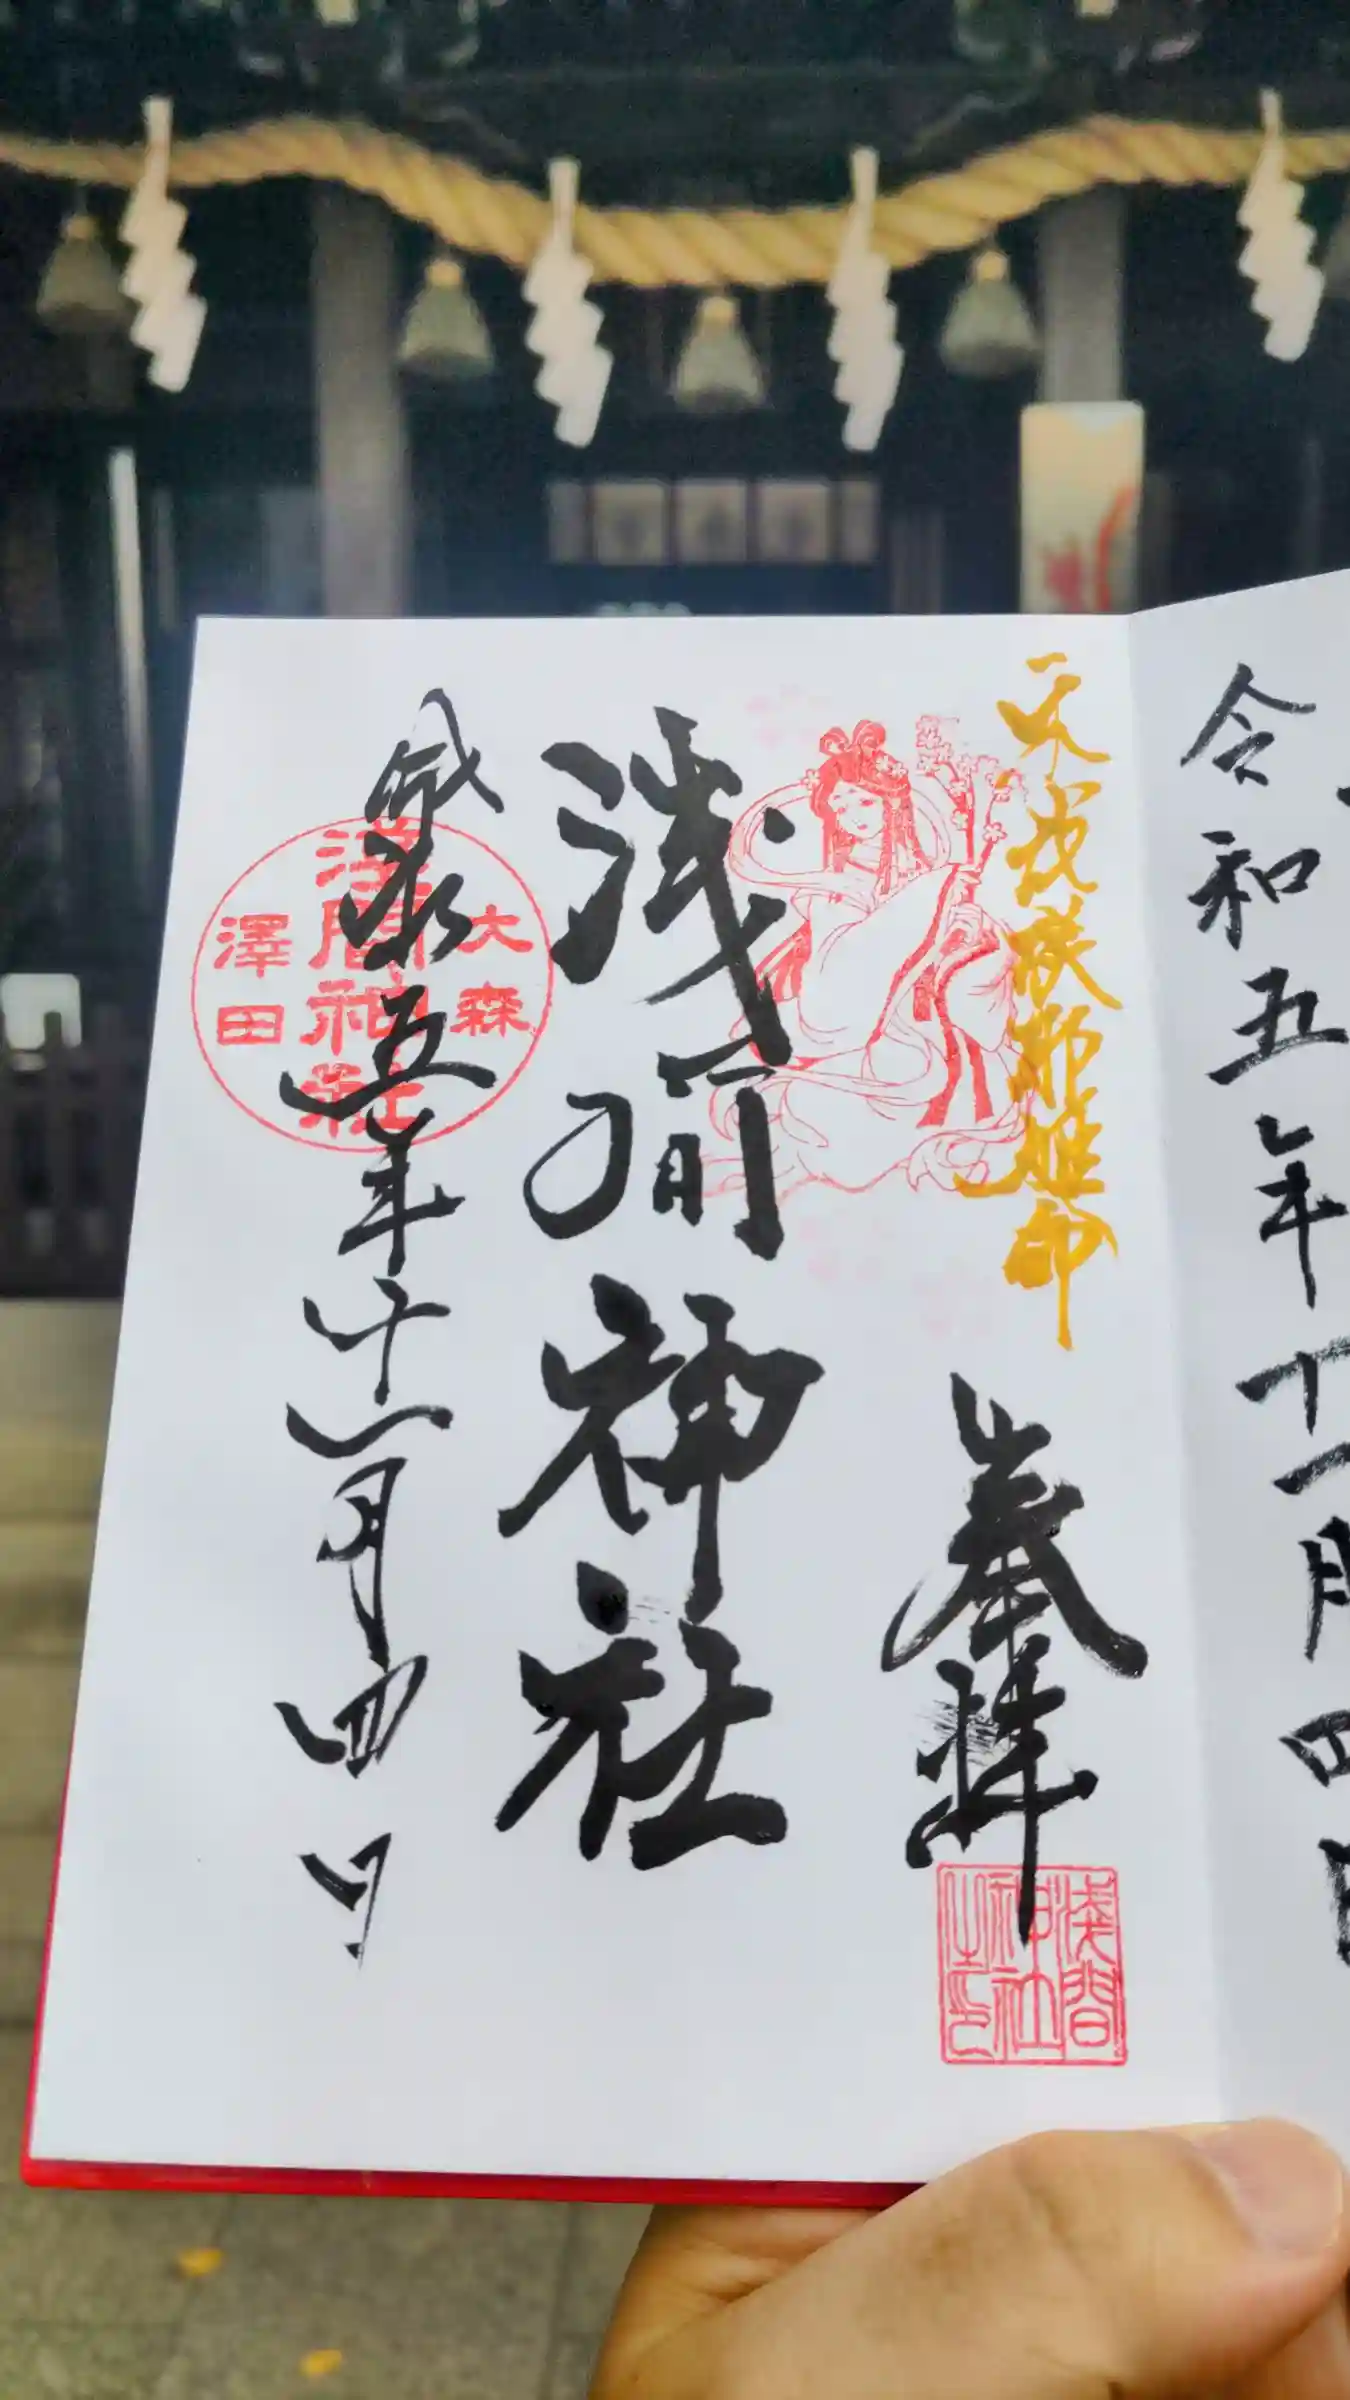 令和五年十一月四日
天咲耶姫印
奉拝
浅間神社
令和五年十一月四日
大森
浅間神社
澤田
浅間
神社
之印